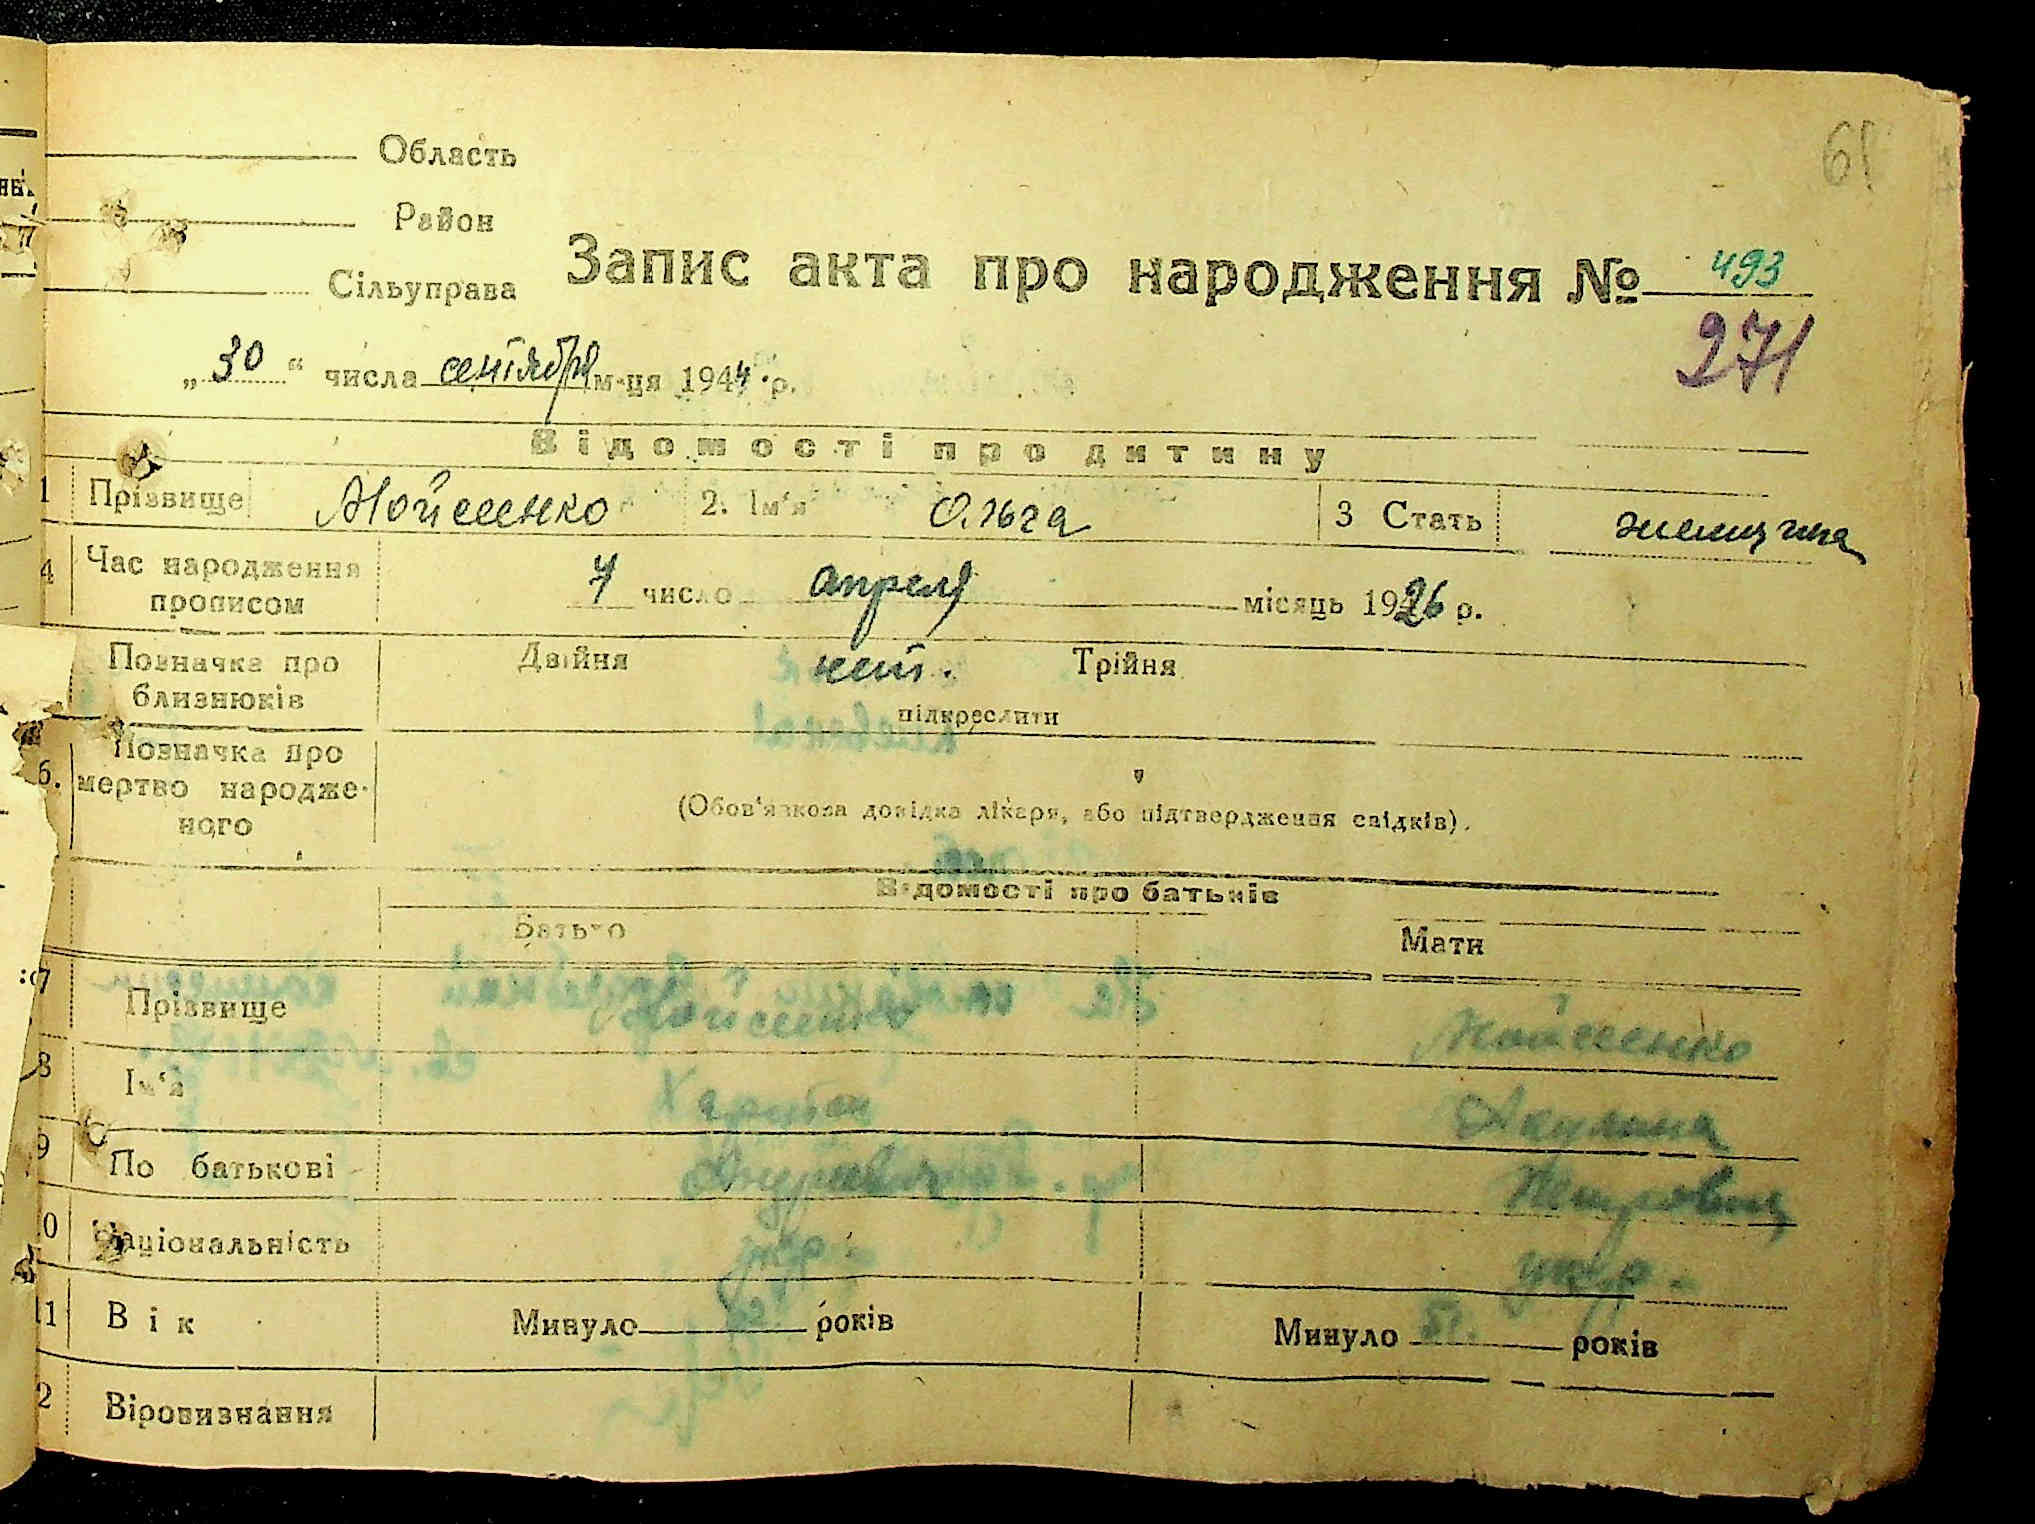 61
Область
Район
Сільуправа
Запис акта про народження № 493
271
„30“ числа сентября м-ця 1944 р.
Відомості про дитину
1 Прізвище Мойсеенко 2. Ім'я Ольга 3 Стать женщина
4 Час народження прописом 7 число апреля місяць 1926 р.
Позначка про близнюків Двійня нет. Трійня
підкреслити
6. Позначка про мертво народженого
(Обов'язкова довідка лікаря, або підтвердження свідків).
Відомості про батьків
Батько Мати
7 Прізвище Мойсеенко Мойсеенко
8 Ім'я Харитон Акулина
9 По батькові Петровна
0 Національність укр. укр.
11 Вік Минуло років Минуло 51. років
2 Віровизнання